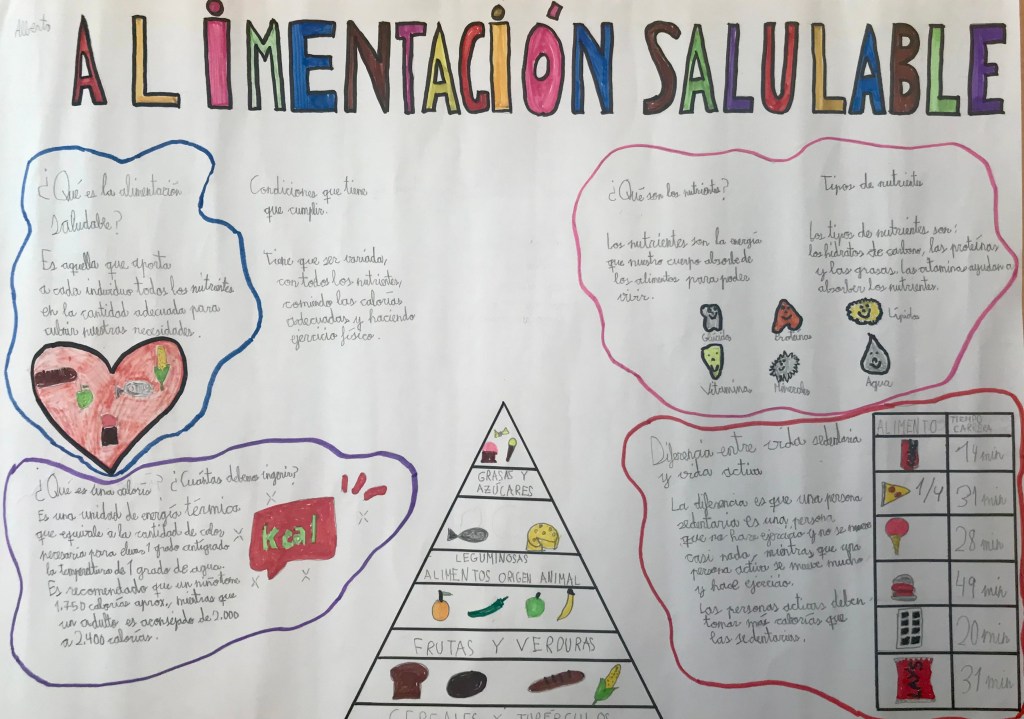 Alberto
ALIMENTACIÓN SALULABLE
¿Qué es la alimentación
saludable?
Es aquella que aporta
a cada individuo todos los nutrientes
en la cantidad adecuada para
cubrir nuestras necesidades.
Condiciones que tiene
que cumplir.
Tiene que ser variada,
con todos los nutrientes,
comiendo las calorías
adecuadas y haciendo
ejercicio físico.
¿Qué son los nutrientes?
Los nutrientes son la energía
que nuestro cuerpo absorbe de
los alimentos para poder
vivir.
Tipos de nutrientes
Los tipos de nutrientes son:
los hidratos de carbono, las proteínas
y las grasas. las vitamina ayudan a
absorber los nutrientes.
Glúcido
Proteína
Lípido
Vitamina
Minerales
Agua
¿Que es una caloría? ¿Cuántas debemos ingerir?
Es una unidad de energía térmica
que equivale a la cantidad de calor
necesario para elevar 1 grado centígrado
la temperatura de 1 grado de agua.
Es recomendado que un niño tome
1.750 calorías aprox, mientras que
un adulto es aconsejado de 2.000
a 2.400 calorías.
Kcal
GRASAS Y
AZÚCARES
LEGUMINOSAS
ALIMENTOS ORIGEN ANIMAL
FRUTAS Y VERDURAS
CEREALES Y TUBÉRCULOS
Diferencia entre vida sedentaria
y vida activa
La diferencia es que una persona
sedentaria es una persona
que no hace ejercicio y no se mueve
casi nada, mientras que una
persona activa se mueve mucho
y hace ejercicio.
Las personas activas deben
tomar mas calorías que
las sedentarias.
ALIMENTO TIEMPO CARRERA
14 min
1/4 31 min
28 min
49 min
20 min
LAYS 31 min